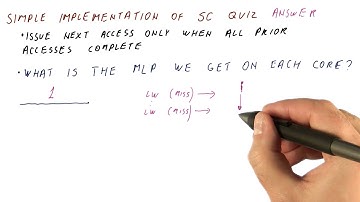 SIMPLE IMPLEMENTATION OF SC QUIZ ANSWER
• ISSUE NEXT ACCESS ONLY WHEN ALL PRIOR
ACCESSES COMPLETE
• WHAT IS THE MLP WE GET ON EACH CORE?
1
LW (MISS) →
⋮
LW (MISS) →